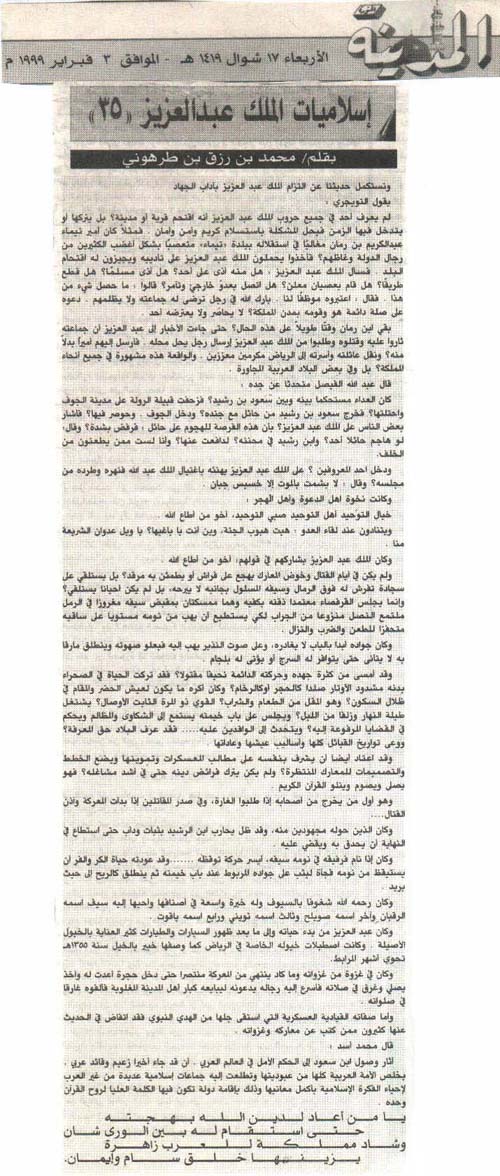 المدينة
الأربعاء ١٧ شوال ١٤١٩ هـ - الموافق ٣ فبراير ١٩٩٩ م
إسلاميات الملك عبدالعزيز «٣٥»
بقلم/ محمد بن رزق بن طرهوني
ونستكمل حديثنا عن التزام الملك عبد العزيز بآداب الجهاد
يقول التويجري :
لم يعرف أحد في جميع حروب الملك عبد العزيز أنه اقتحم قرية أو مدينة؟ بل يتركها أو
يتدخل فيها الزمن فيحل المشكلة باستسلام كريم وأمن وأمان . فمثلاً كان أمير تيماء
عبدالكريم بن رمان مغاليًا في استقلاله ببلدة «تيماء» متعصبًا بشكل أغضب الكثيرين من
رجال الدولة وغاظهم؟ فأخذوا يحملون الملك عبد العزيز على تأديبه ويجيزون له اقتحام
البلد . فسأل الملك عبد العزيز ، هل منه أذى على أحد؟ هل آذى مسلمًا؟ هل قطع
طريقًا؟ هل قام بعصيان معلن؟ هل اتصل بعدو خارجي وتآمر؟ قالوا : ما حصل شيء من
هذا . فقال : اعتبروه موظفًا لنا . بارك الله في رجل ترضى له جماعته ولا يظلمهم . دعوه
على صلة دائمة هو وقومه بمدن المملكة؟ لا يحاصر ولا يعترضه أحد .
بقي ابن رمان وقتًا طويلاً على هذه الحال؟ حتى جاءت الأخبار إلى عبد العزيز أن جماعته
ثاروا عليه وقتلوه وطلبوا من الملك عبد العزيز إرسال رجل يحل محله . فأرسل إليهم أميرًا بدلاً
منه؟ ونقل عائلته وأسرته إلى الرياض مكرمين معززين . والواقعة هذه مشهورة في جميع أنحاء
المملكة؟ بل وفي بعض البلاد العربية المجاورة .
قال عبد الله الفيصل متحدثا عن جده :
كان العداء مستحكما بينه وبين سعود بن رشيد؟ فزحفت قبيلة الرولة على مدينة الجوف
واحتلتها؟ فخرج سعود بن رشيد من حائل مع جنده؟ ودخل الجوف . وحوصر فيها؟ فأشار
بعض الناس على الملك عبد العزيز؟ بأن هذه الفرصة للهجوم على حائل ؛ فرفض بشدة؟ وقال:
لو هاجم حائلا أحد؟ وابن رشيد في محنته؟ لدافعت عنها؟ وأنا لست ممن يطعنون من
الخلف.
ودخل أحد المعروفين ؟ على الملك عبد العزيز يهنئه باغتيال الملك عبد الله فنهره وطرده من
مجلسه؟ وقال : لا يشمت بالموت إلا خسيس جبان .
وكانت نخوة أهل الدعوة وأهل الهجر :
خيال التوحيد أهل التوحيد صبي التوحيد، أخو من أطاع الله .
ويتنادون عند لقاء العدو : هبت هبوب الجنة، وين أنت يا باغيها؟ يا ويل عدوان الشريعة
منا
وكان الملك عبد العزيز يشاركهم في قولهم: أخو من أطاع الله .
ولم يكن في أيام القتال وخوض المعارك يهجع على فراش أو يطمئن به مرقد؟ بل يستلقي على
سجادة تفرش له فوق الرمال وسيفه المسلول بجانبه لا يبرحه، بل لم يكن أحيانا يستلقي؟
وإنما يجلس القرفصاء معتمدا ذقنه بكفيه وهما ممسكتان بمقبض سيفه مغروزًا في الرمل
ملتمع النصل منزوعا من الجراب لكي يستطيع أن يهب من نومه مستويًا على ساقيه
متحفزًا للطعن والضرب والنزال .
وكان جواده أبدا بالباب لا يغادره، وعلى صوت النذير يهب إليه فيعلو صهوته وينطلق مارقا
به لا يتأنى حتى يتوافر له السرج أو يؤتى له بلجام .
وقد أمسى من كثرة جهده وحركته الدائمة نحيفا مفتولا؟ فقد تركت الحياة في الصحراء
بدنه مشدود الأوتار صلدا كالحجر أوكالرخام؟ وكان أكره ما يكون لعيش الحضر والمقام في
ظلال السكون؟ وهو المقل من الطعام والشراب؟ القوي ذو المرة الثابت الأوصال؟ يشتغل
طيلة النهار وزلفا من الليل؟ ويجلس على باب خيمته يستمع إلى الشكاوى والظالم ويحكم
في القضايا المرفوعة إليه؟ ويتحدث إلى الوافدين عليه..... فقد عرف البلاد حق المعرفة؟
ووعى تواريخ القبائل كلها وأساليب عيشها وعاداتها .
وقد اعتاد أيضا أن يشرف بنفسه على مطالب المعسكرات وتموينها ويضع الخطط
والتصميمات للمعارك المنتظرة؟ ولم يكن يترك فرائض دينه حتى في أشد مشاغله؟ فهو
يصلي ويصوم ويتلو القرآن الكريم .
وهو أول من يخرج من أصحابه إذا طلبوا الغارة، وفي صدر المقاتلين إذا بدأت المعركة وأذن
القتال....
وكان الذين حوله مجهودين منه، وقد ظل يحارب ابن الرشيد بثبات ودأب حتى استطاع في
النهاية أن يحدق به ويقضي عليه .
وكان إذا نام فرفيقه في نومه سيفه، أيسر حركة توقظه .......وقد عودته حياة الكر والفر أن
يستيقظ من نومه فجأة ليثب على جواده المربوط عند باب خيمته ثم ينطلق كالريح إلى حيث
يريد .
وكان رحمه الله شغوفا بالسيوف وله خبرة واسعة في أصنافها وأحبها إليه سيف اسمه
الرقبان وآخر اسمه صويلح وثالث اسمه تويني ورابع اسمه ياقوت .
وكان عبد العزيز من بدء حياته وإلى ما بعد ظهور السيارات والطيارات كثير العناية بالخيول
الأصيلة . وكانت اصطبلات خيوله الخاصة في الرياض كما وصفها خبير بالخيل سنة ١٣٥٥هـ
تحوي أشهر المرابط.
وكان في غزوة من غزواته وما كاد ينتهي من المعركة منتصرا حتى دخل حجرة أعدت له وأخذ
يصلي وغرق في صلاته فأسرع إليه رجاله يدعونه ليبايعه كبار أهل المدينة المغلوبة فألفوه غارقا
في صلواته .
وأما صفاته القيادية العسكرية التي استقى جلها من الهدي النبوي فقد أفاض في الحديث
عنها كثيرون ممن كتب عن معاركه وغزواته .
قال محمد أسد :
أثار وصول ابن سعود إلى الحكم الأمل في العالم العربي . أن قد جاء أخيرا زعيم وقائد عربي .
يخلص الأمة العربية كلها من عبوديتها وتطلعت إليه جماعات إسلامية عديدة من غير العرب
لإحياء الفكرة الإسلامية بأكمل معانيها وذلك بإقامة دولة تكون فيها الكلمة العليا لروح القرآن
وحده .
يا من أعاد لدين الله بهجته
حتى استقام له بين الورى شان
وشاد مملكة للعرب زاهرة
يزينها خلق سام وإيمان.